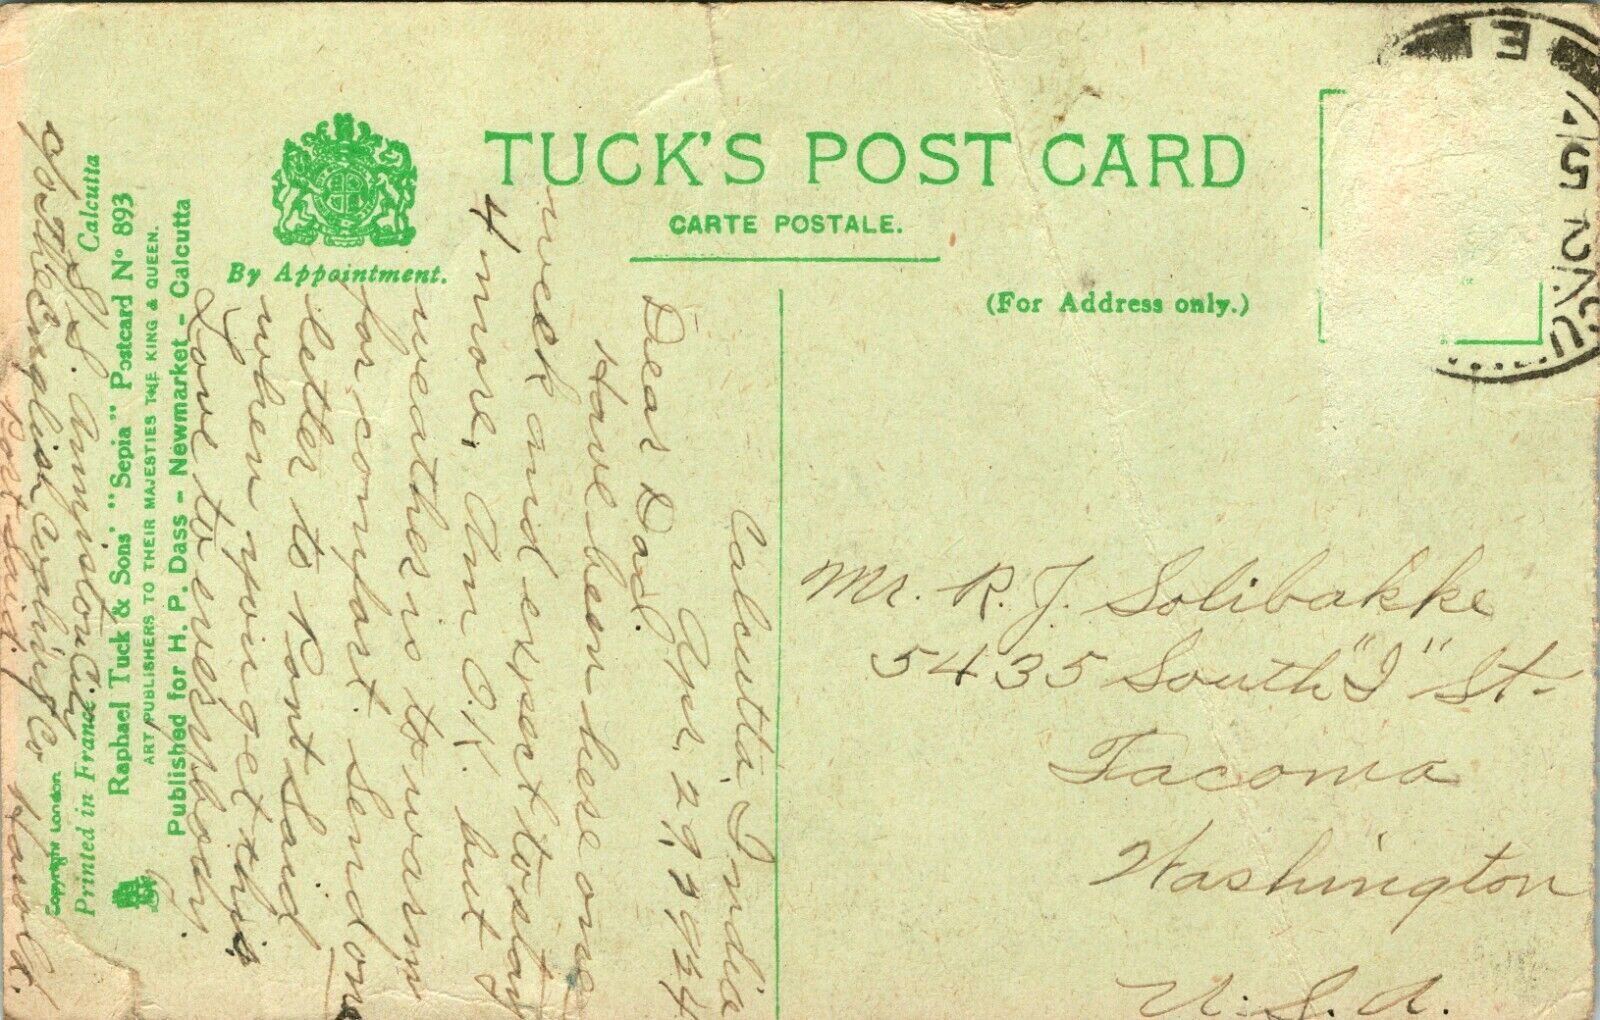 TUCK'S POST CARD
CARTE POSTALE.
By Appointment.
(For Address only.)
Calcutta India
Apr. 29, 1924
Dear Dad.
Have been here one
week and expect to stay
4 more, Am O.K. but
weather is to warm
for comfort. Send one
letter to Port Said
when you get this
Love to everybody.
Harold.
S/S. Anniston City
% The English Coaling Co
Port Said.
Mr. R. J. Solibakke
5435 South "I" St.
Tacoma
Washington
U. S. A.
Published for H. P. Dass - Newmarket - Calcutta
ART PUBLISHERS TO THEIR MAJESTIES THE KING & QUEEN.
Raphael Tuck & Sons' "Sepia" Postcard No 893
Calcutta
Printed in France
Copyright London